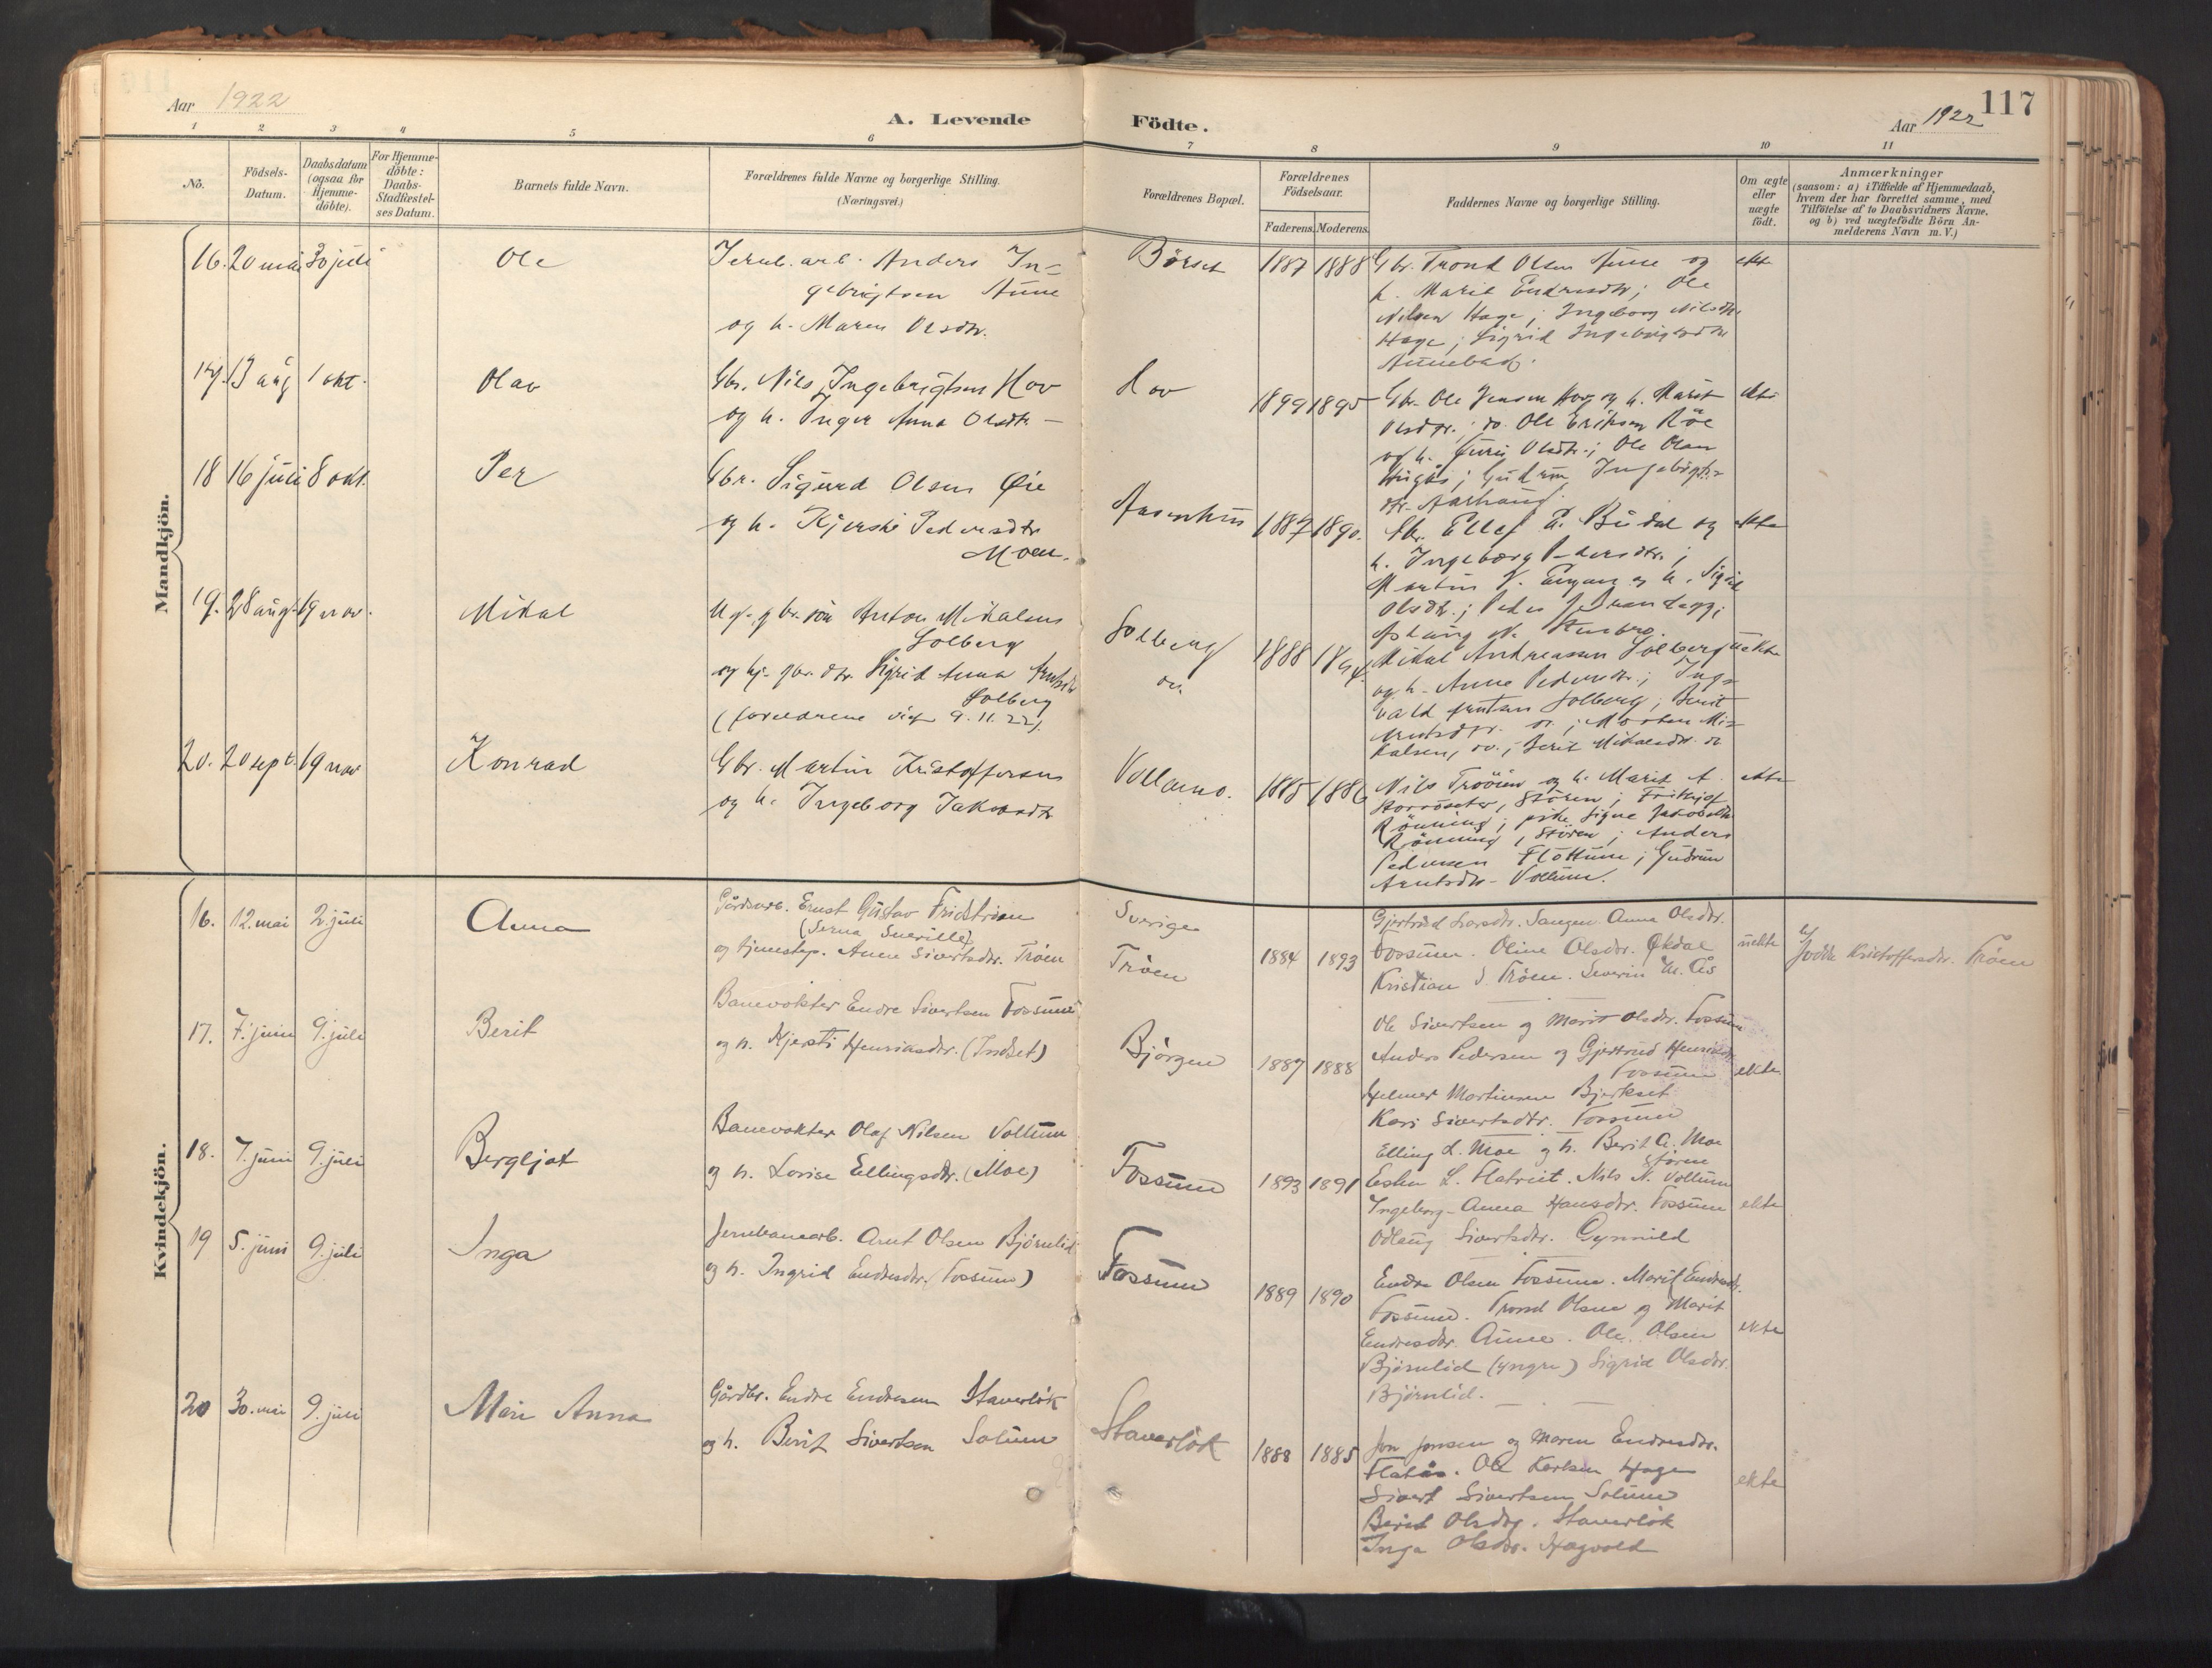 Aar 1922
A. Levende
Födte.
Aar 1922
117
1 2 3 4 5 6 7 8 9 10 11
No.
Födsels-
Datum.
Daabsdatum
(ogsaa for
Hjemme-
döbte).
For Hjemme-
döbte:
Daabs-
Stadfæstel-
ses Datum.
Barnets fulde Navn.
Forældrenes fulde Navne og borgerlige Stilling.
(Næringsvei.)
Forældrenes Bopæl.
Forældrenes
Födselsaar.
Faderens. Moderens.
Faddernes Navne og borgerlige Stilling.
Om ægte
eller
uægte
födt.
Anmærkninger
(saasom: a) i Tilfælde af Hjemmedaab,
hvem der har forrettet samme, med
Tilföielse af to Daabsvidners Navne.
og b) ved uægtefödte Börn An-
melderens Navn m. V.)
Mandkjön.
16. 20 mai 30 juli
Ole
Jernb. arb. Anders In-
gebrigtsen Aune
og h. Maren Olsdtr.
Börset
1887 1888
Gbr. Trond Olsen Aune og
h. Marit Endresdtr; Ole
Nilsen Hage; Ingeborg Nilsdtr.
Hage; Sigrid Ingebrigtsdtr
ekte
17. 13 aug 1 okt.
Olav
Gbr. Nils Ingebrigtsen Hov
og h. Inger Anna Olsdtr. —
Hov
1899 1895
Gbr. Ole Jensen Hov og h. Marit
Olsdtr.; do. Ole Eriksen Röe
og h. Guri Olsdtr.; Ole Olsen
; Gudrun Ingebrigts-
dtr.
ekte
18 16 juli 8 okt.
Per
Gbr. Sigurd Olsen Öie
og h. Kjersti Pedersdtr
Moen.
1887 1890.
Gbr. Ellef E. Budal og
h. Ingeborg Pedersdtr.;
Martin og h. Sigrid
Olsdtr.; Peder
ekte
19. 28 aug. 19 nov.
Mikal
Ug. gbr. sön Anton Mikalsen
Solberg
og pj. gbr. dtr. Sigrid Anna Arntsdtr
Solberg
(foreldrene viet 9. 11. 22).
Solberg
do.
1888
Mikal Andreassen Solberg
og h. Anne Pedersdtr.; Ing-
vald Arntsen Solberg; Berit
Arntsdtr. do.; Morten Mi-
kalsen, do.; Berit Mikalsdtr. do
uekte
20. 20 sept. 19 nov
Konrad
Gbr. Martin Kristoffersen
og h. Ingeborg Jakobsdtr
Vollamo.
1885 1886
Nils Trööien og h. Marit A.
Stören; Fridtjof
Rönning; pike Signe Jakobsdtr
Rönning, Stören; Anders
Pedersen Flöttum; Gudrun
Arntsdtr. Vollum.
ekte
Kvindekjön.
16. 12. mai 2. juli
Anna
Gårdsarb. Ernst Gustav Fridström
og tjenestep. Anne Sivertsdtr. Tröen
Sverige
Tröen
1884 1893
Gjertrud Larsdtr. Sangen. Anna Olsdtr.
Fossum. Oline Olsdtr. Økdal
Kristian J. Tröen. Severin M. Ås
uekte
Kristoffersdtr. Tröen
17. 7. juni 9. juli
Berit
Banevokter Endre Sivertsen Fossum
og h. Kjersti Henriksdtr. (Indset)
Björgen
1887 1888
Ole Sivertsen og Marit Olsdtr. Fossum
Anders Pedersen og Gjertrud Henriksdtr.
Fossum
Helmer Martinsen Bjerkset
Kari Sivertsdtr. Fossum
ekte.
18. 7. juni 9. juli
Bergljot
Banevokter Olaf Nilsen Vollum
og h. Lovise Ellingsdtr. (Moe)
Fossum
1893 1891
Elling L. Moe og h. Berit A. Moe
Stören
Esten L. Nils N. Vollum
Ingeborg-Anna Hansdtr. Fossum
Odlaug Sivertsdtr. Gynnild
ekte
19 5. juni 9. juli
Inga
Jernbanearb. Arnt Olsen Björnlid
og h. Ingrid Endresdtr. (Fossum)
Fossum
1889 1890
Endre Olsen Fossum. Marit Endresdtr.
Fossum. Trond Olsen og Marit
Endresdtr. Aune. Ole Olsen
Björnlid (yngre) Sigrid Olsdtr.
Björnlid.
ekte
20 30. mai 9. juli
Mari Anna
Gårdbr. Endre Endresen Staverlök
og h. Berit Sivertsen Solum
Staverlök
1888 1885
Jon Jonsen og Maren Endresdtr.
Flatås. Ole Karlsen Hage
Sivert Sivertsen Solum
Berit Olsdtr. Staverlök
Inga Olsdtr. Hagvold
ekte